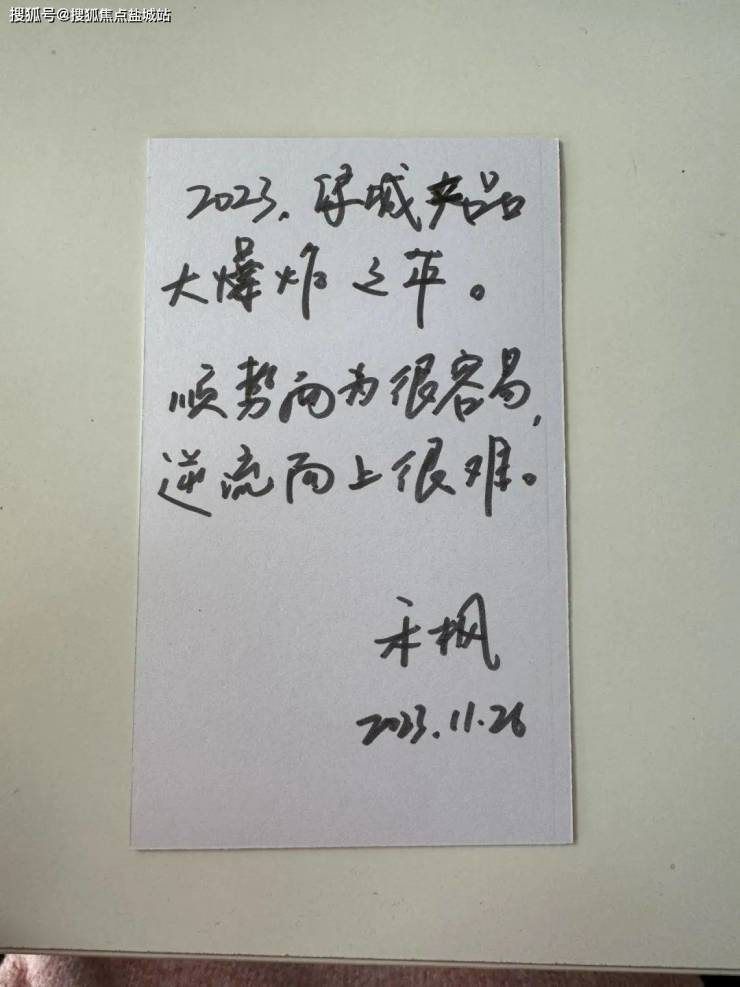 搜狐号@搜狐焦点盐城站
2023，绿城产品
大爆炸之年。
顺势而为很容易，
逆流而上很难。
禾枫
2023.11.26